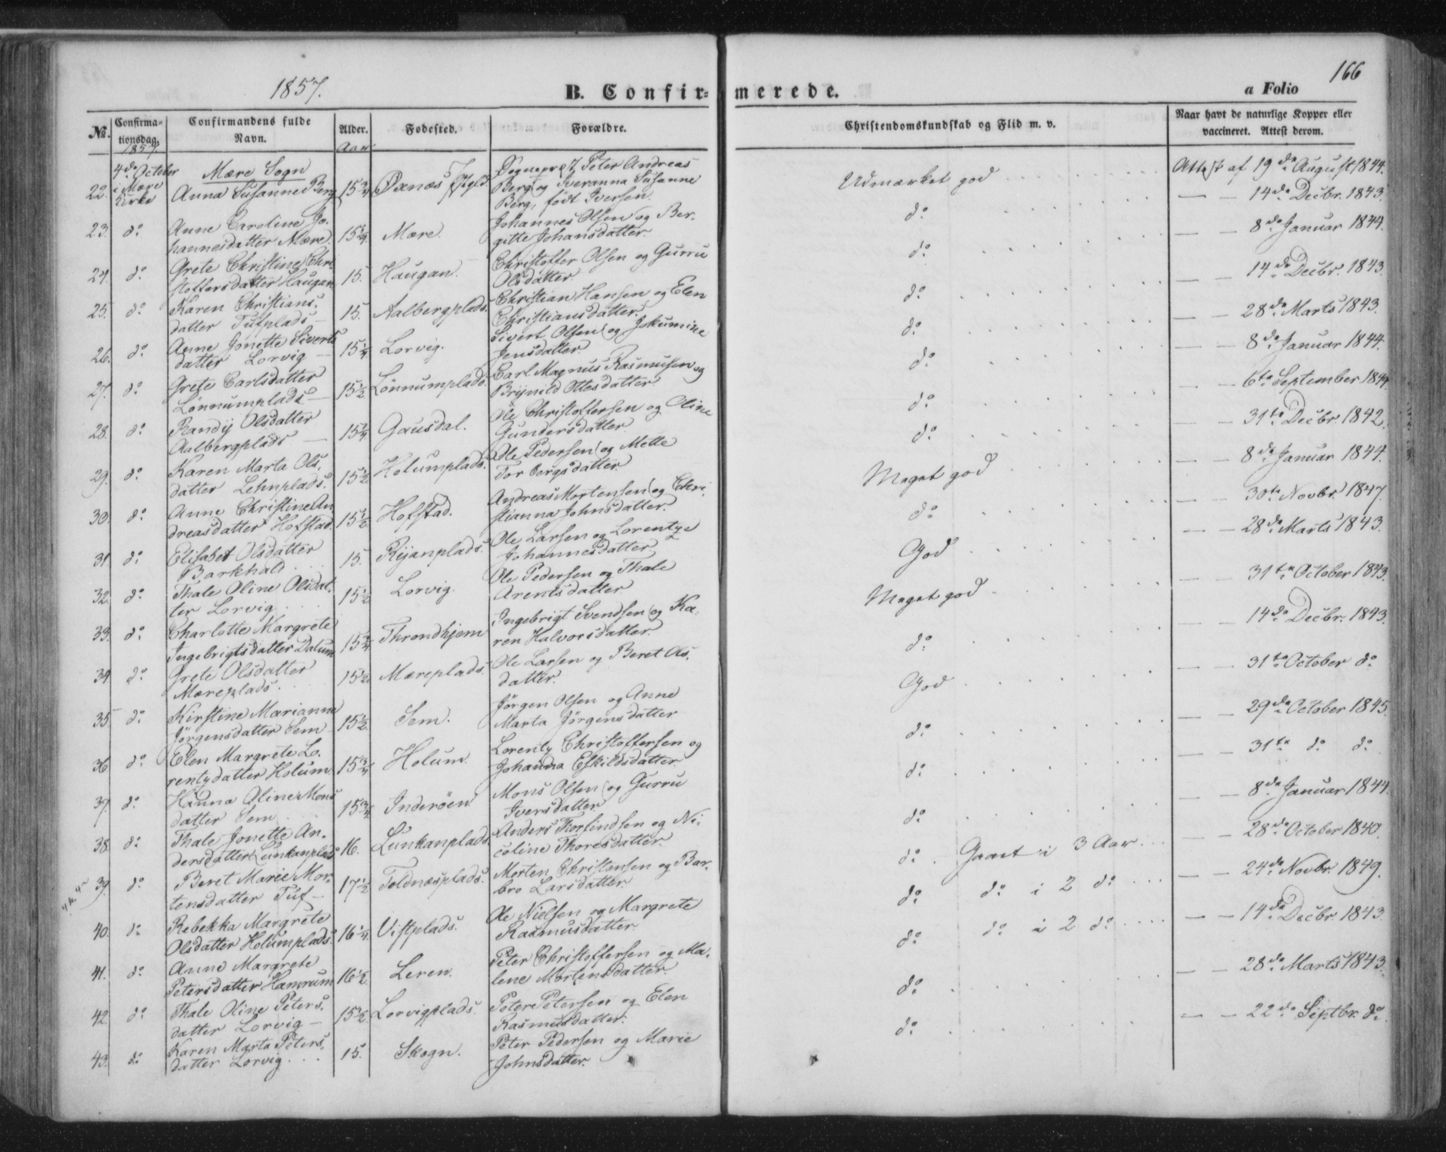 1857.
B. Confirmerede.
166
a Folio
No.
Confirma-
tionsdag.
Confirmandens fulde
Navn.
Alder.
Fødested.
Forældre.
Christendomskundskab og Flid m. v.
Naar havt de naturlige Kopper eller
vaccineret. Attest derom.
1857
Aar
4de October
i Mære
Kirke
Mære Sogn
22. Anna Susanne Berg 15 3/4 Sognepr. J. Peter Andreas
Berg og Iveranna Susanne
Berg, født Iversen.
Udmærket god
Attest af 19de August 1844.
23. do Anne Caroline Jo-
hannesdatter Mære. 15 1/4 Mære. Johannes Olsen og Ber-
gitte Johansdatter
do
— — 14de Decbr. 1843.
24. do Grete Christine Chri-
stoffersdatter Haugan 15. Haugan. Christoffer Olsen og Gurru
Olsdatter
do
— — 8de Januar 1844.
25. do Karen Christians-
datter Tufplads 15. Aalbergplads. Christian Hansen og Elen
Christiansdatter
do
— — 14de Decbr. 1843.
26. do Anne Jonette Siverts-
datter Lorvig 15 1/4 Lorvig. Sivert Olsen og Jokumine
Jensdatter
do
— — 28de Marts 1843.
27. do Grete Carlsdatter
Lønnumplads 15 1/2 Lønnumplads. Carl Magnus Rasmussen og
Brynild Ottesdatter
do
— — 8de Januar 1844.
28. do Randi Olsdatter
Aalbergplads 15 3/4 Gausdal. Ole Christoffersen og Oline
Gundersdatter
do
— — 6te September 1844
29. do Karen Marta Ols-
datter Lehnplads. 15 1/2 Holumplads. Ole Pedersen og Mette
Torbergsdatter
do
— — 31te Decbr. 1842.
30. do Anne Christine An-
dreasdatter Hofstad 15 1/2 Hofstad. Andreas Mortensen og Chri-
stianna Johnsdatter
Meget god
— — 8de Januar 1844.
31. do Elisabet Olsdatter
Barkhald 15. Ole Larsen og Lorentze
Johannesdatter
do
— — 30te Novbr. 1847.
32. do Thale Oline Olsdat-
ter Lorvig 15 1/2 Lorvig. Ole Pedersen og Thale
Arentsdatter
God
— — 28de Marts 1843.
33. do Charlotte Margrete
Ingebrigtsdatter Dalum 15 3/4 Throndhjem Ingebrigt Svendsen og Ka-
ren Halvorsdatter.
Meget god
— — 31te October 1843.
34. do Grete Olsdatter
Mæreplads 15 1/2 Mæreplads. Ole Larsen og Beret As-
datter.
do
— — 14de Decbr. 1843.
35 do Kirstine Marianne
Jørgensdatter Sem 15 1/2 Sem. Jørgen Olsen og Anne
Marta Jørgensdatter
God
— — 31te October do
36 do Elen Margrete Lo-
rentzdatter Holum 15 3/4 Holum. Lorentz Christoffersen og
Johanna Eskildsdatter
do
— — 29de October 1845.
37. do Hanna Oline Mons-
datter Sem 15 3/4 Inderøen Mons Olsen og Gurru
Iversdatter
do
— — 31te do do
38. do Thale Jonette An-
dersdatter Lunkanplads 16. Lunkanplads. Anders Thorfindsen og Ni-
coline Thoresdatter.
do
— — 8de Januar 1844.
39. do Beret Marie Mor-
tensdatter Tuf 17 1/2 Foldnæsplads. Morten Christensen og Bar-
bro Larsdatter
do. Gaaet i 3 Aar
— — 28de October 1840.
40. do Rebekka Margrete
Olsdatter Holumplads 16 1/4 Vistplads. Ole Nielsen og Margrete
Rasmusdatter
do do i 2 do
— — 24de Novbr. 1849.
41. do Anne Margrete
Petersdatter Hamrum 16 1/2 Leren. Peter Christoffersen og Ma-
lene Mortensdatter
do do i 2 do
— — 14de Decbr. 1843.
42. do Thale Oline Peters-
datter Lorvig 15 1/2 Lorvigplads. Peter Petersen og Elen
Rasmusdatter.
do
— — 28de Marts 1843.
43. do Karen Marta Peters-
datter Lorvig 15. Skogn. Peter Pedersen og Marie
Johnsdatter.
do
— — 22de Septbr. do